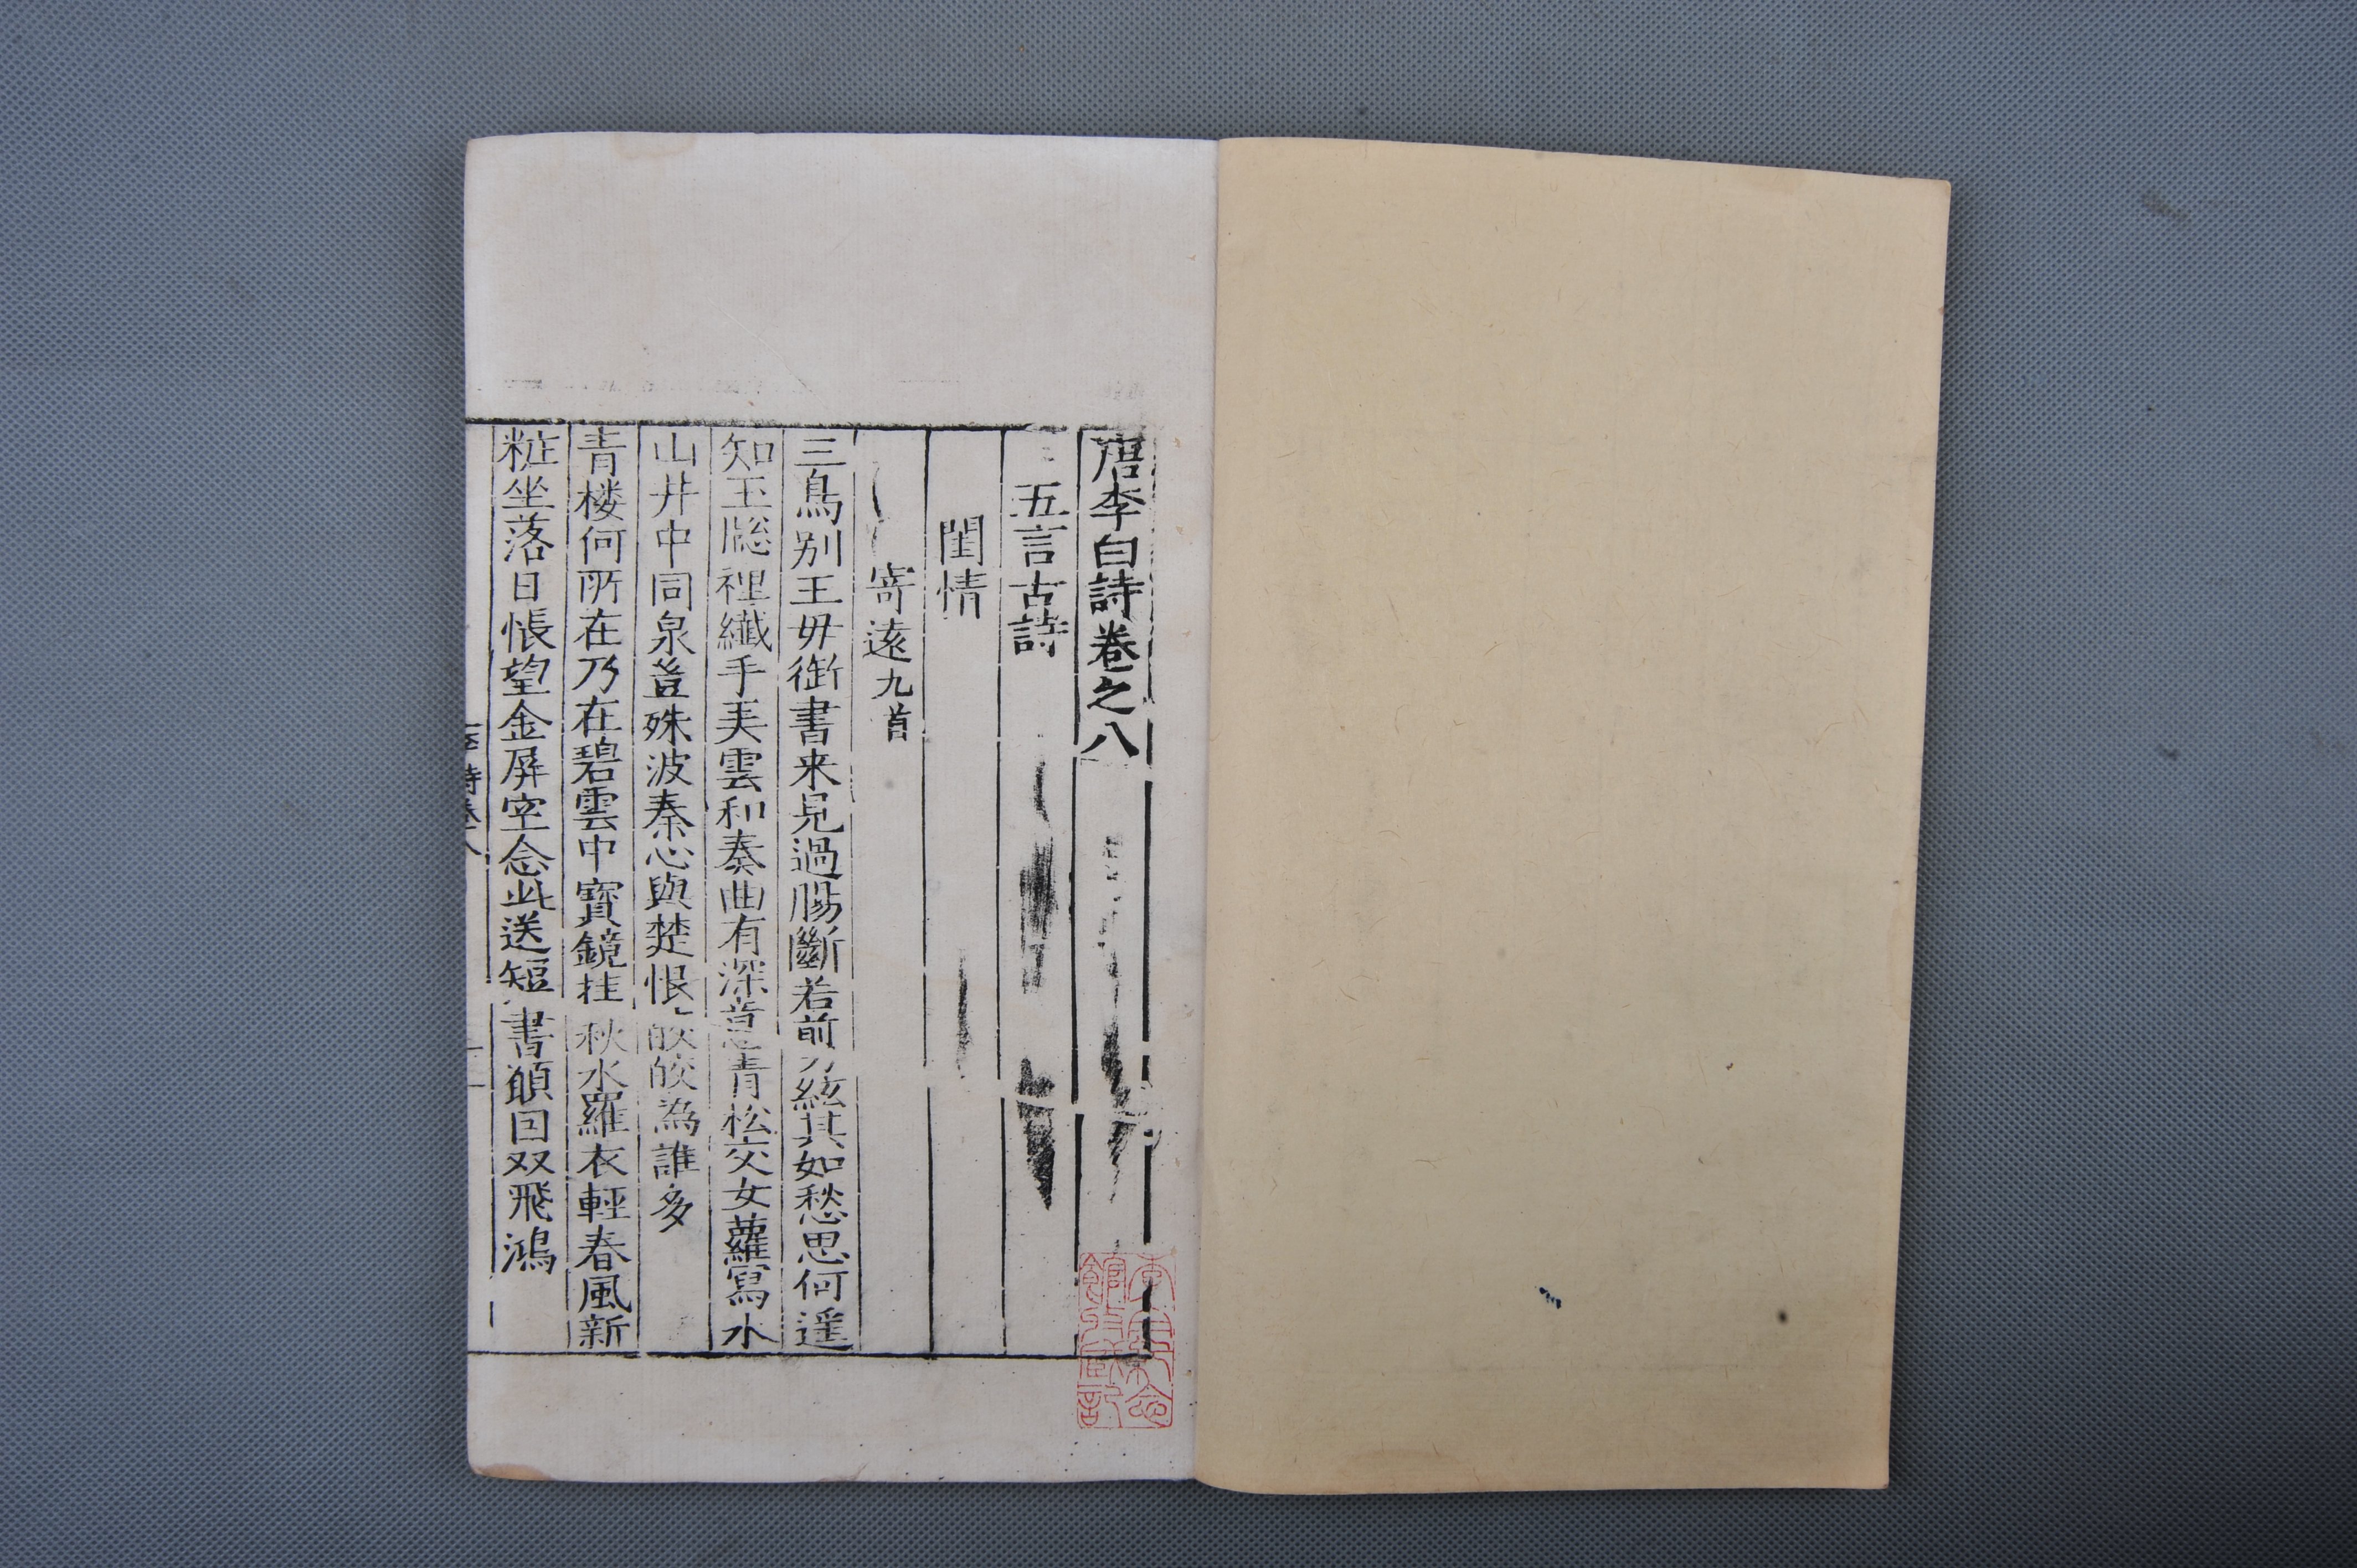 唐李白詩卷之八
五言古詩
閨情
寄遠九首
三鳥别王毋銜書来見過腸斷若前絃其如愁思何遥
知玉牕裡纖手美雲和奏曲有深意青松交女蘿寫水
山井中同泉豈殊波秦心與楚恨皎皎為誰多
青楼何所在乃在碧雲中寳鏡挂秋水羅衣輕春風新
粧坐落日悵望金屏空念此送短書願回双飛鴻
李詩卷八
李白紀念
館收藏記